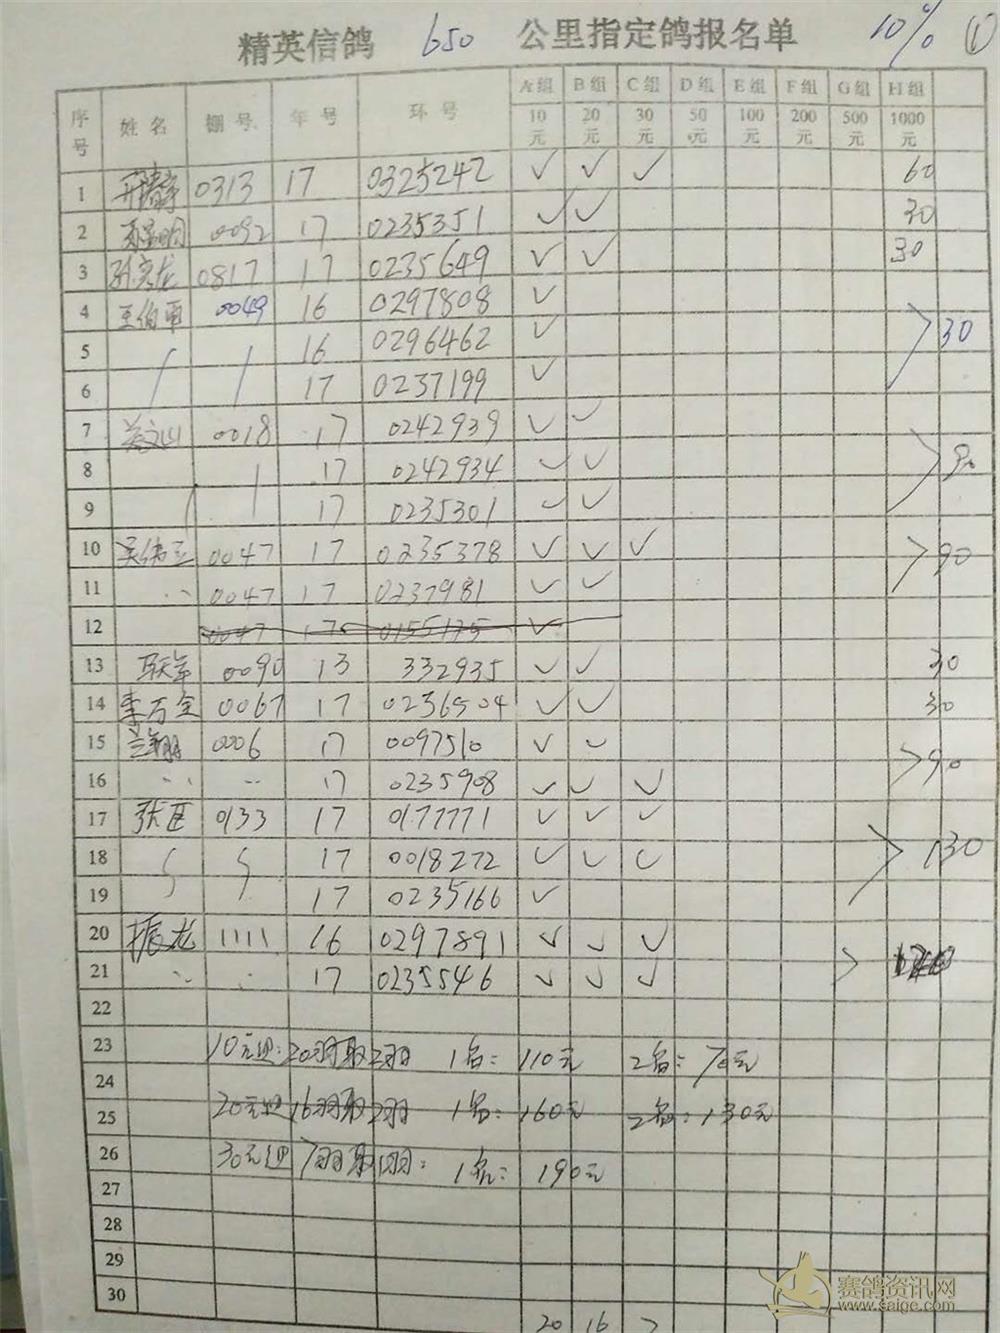 精英信鸽 650 公里指定鸽报名单 10% ①
序号 姓名 棚号 年号 环号 A组 B组 C组 D组 E组 F组 G组 H组
10元 20元 30元 50元 100元 200元 500元 1000元
1 0313 17 0325242 ✓ ✓ ✓ 60
2 0092 17 0235351 ✓ ✓ 30
3 0817 17 0235649 ✓ ✓ 30
4 王伯军 0049 16 0297808 ✓
5 16 0296462 ✓ 30
6 17 0237199 ✓
7 0018 17 0242939 ✓ ✓
8 17 0242934 ✓ ✓ 90
9 17 0235301 ✓ ✓
10 0047 17 0235378 ✓ ✓ ✓ 90
11 0047 17 0237981 ✓ ✓
12 0047 17 0155175 ✓
13 0090 13 332935 ✓ ✓ 30
14 李万金 0067 17 0236504 ✓ ✓ 30
15 兰翔 0006 17 0097510 ✓ ✓ 90
16 17 0235908 ✓ ✓ ✓
17 张臣 0133 17 0177771 ✓ ✓ ✓
18 17 0018272 ✓ ✓ ✓ 130
19 17 0235166 ✓
20 振龙 1111 16 0297891 ✓ ✓ ✓
21 17 0235546 ✓ ✓ ✓
22
23 10元组:20羽取2羽 1名:110元 2名:70元
24
25 20元组16羽取2羽 1名:160元 2名:130元
26 30元组7羽取1羽: 1名:190元
27
28
29
30
20 16 7
赛鸽资讯网
www.saige.com